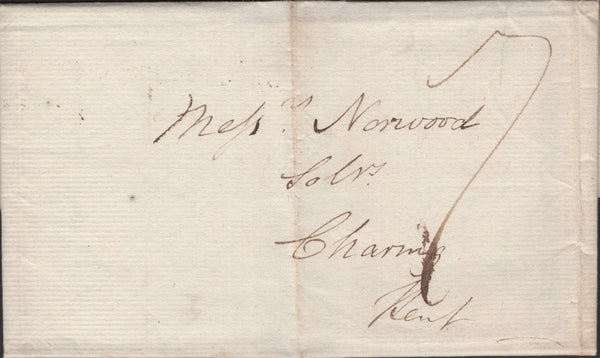 Messrs Norwood
Solrs
Charing
Kent
7